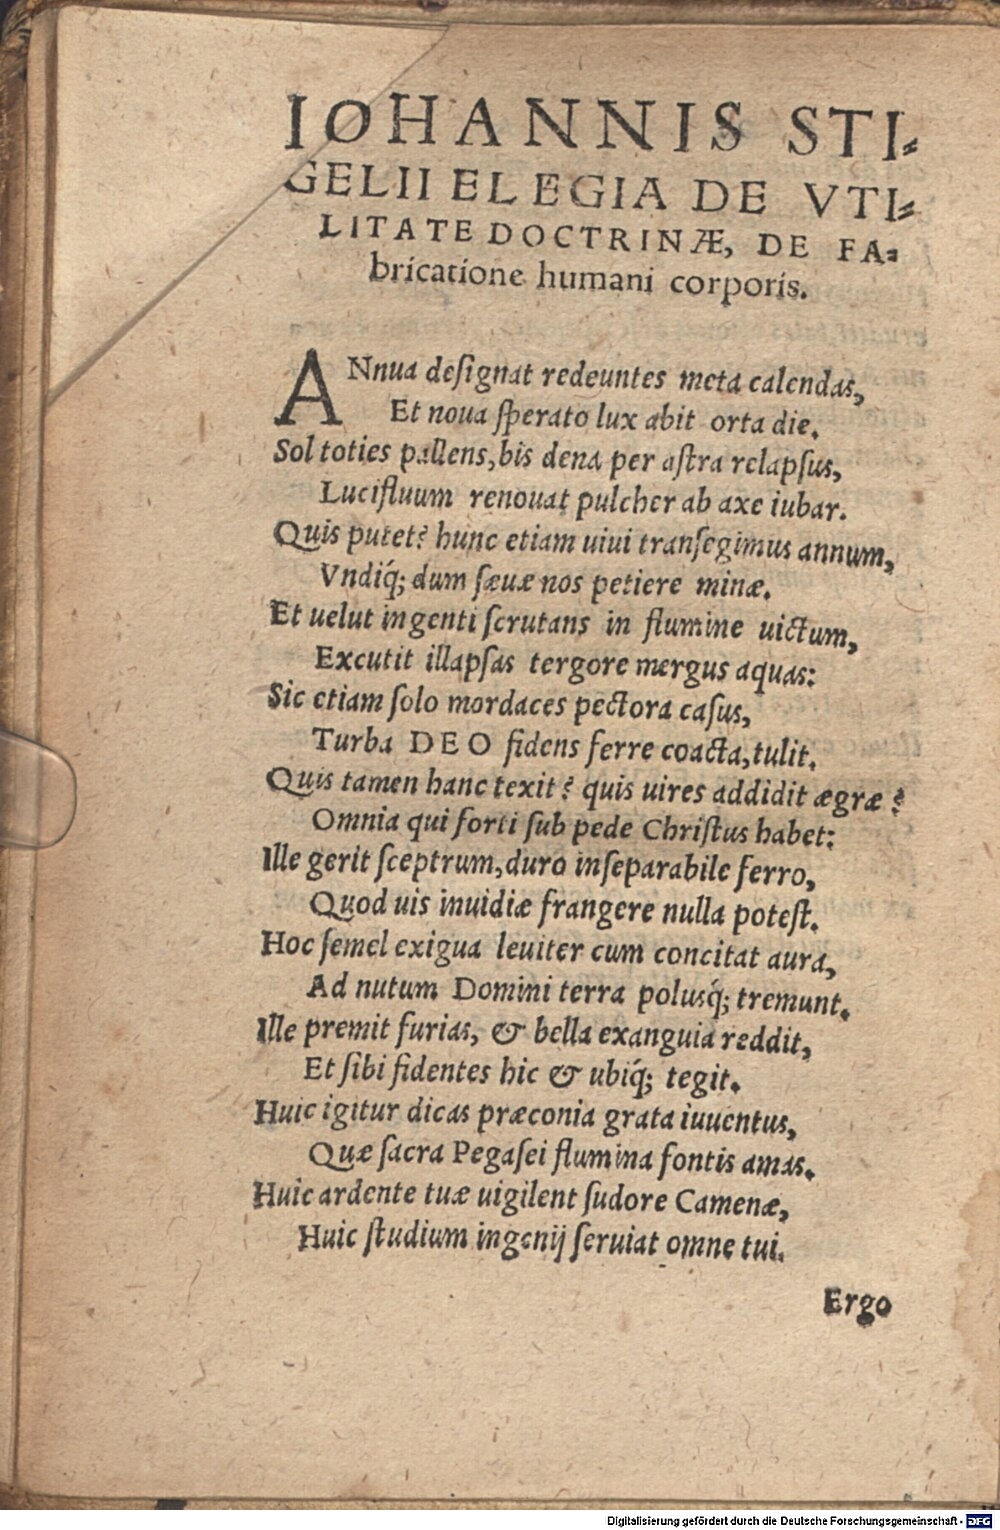 IOHANNIS STI⸗
GELII ELEGIA DE VTI⸗
LITATE DOCTRINÆ, DE FA⸗
bricatione humani corporis.
ANnua deſignat redeuntes meta calendas,
Et noua ſperato lux abit orta die.
Sol toties pallens, bis dena per aſtra relapſus,
Lucifluum renouat pulcher ab axe iubar.
Quis putet? hunc etiam uiui tranſegimus annum,
Vndiq́; dum ſæuæ nos petiere minæ.
Et uelut ingenti ſcrutans in flumine uictum,
Excutit illapſas tergore mergus aquas:
Sic etiam ſolo mordaces pectora caſus,
Turba DEO fidens ferre coacta, tulit.
Quis tamen hanc texit? quis uires addidit ægræ?
Omnia qui forti ſub pede Chriſtus habet:
Ille gerit ſceptrum, duro inſeparabile ferro,
Quod uis inuidiæ frangere nulla poteſt.
Hoc ſemel exigua leuiter cum concitat aura,
Ad nutum Domini terra polusq́; tremunt.
Ille premit furias, & bella exanguia reddit,
Et ſibi fidentes hic & ubiq́; tegit.
Huic igitur dicas præconia grata iuuentus,
Quæ ſacra Pegaſei flumina fontis amas.
Huic ardente tuæ uigilent ſudore Camenæ,
Huic ſtudium ingenij ſeruiat omne tui.
Ergo
Digitalisierung gefördert durch die Deutsche Forschungsgemeinschaft - DFG